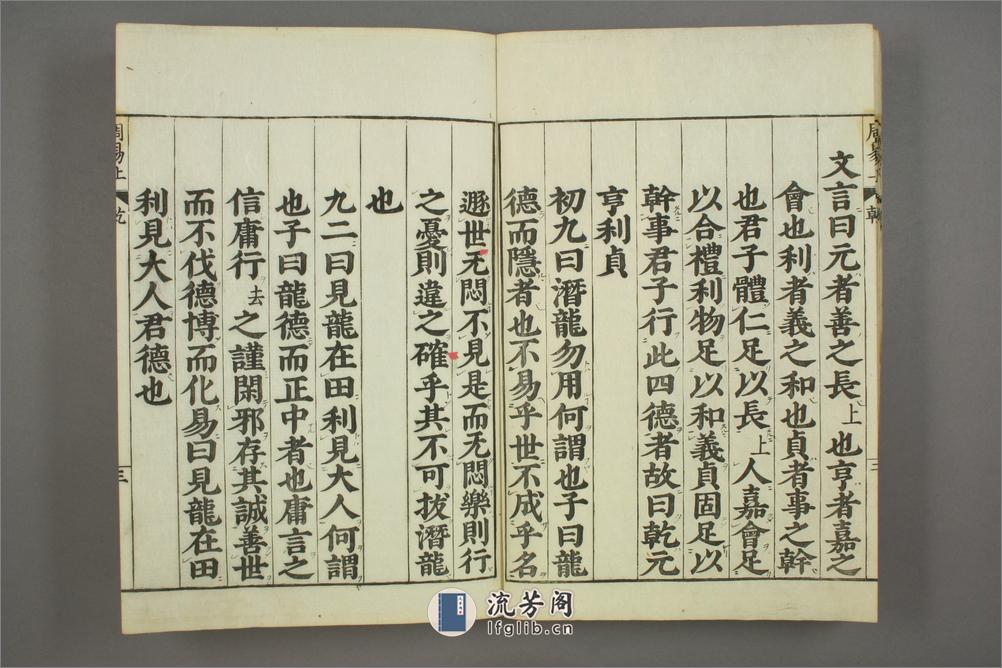 文言曰元者善之長上也亨者嘉之
會也利者義之和也貞者事之幹
也君子體仁足以長上人嘉會足
以合禮利物足以和義貞固足以
幹事君子行此四德者故曰乾元
亨利貞
初九曰潛龍勿用何謂也子曰龍
德而隱者也不易乎世不成乎名
遯世无悶不見是而无悶樂則行
之憂則違之確乎其不可拔潛龍
也
九二曰見龍在田利見大人何謂
也子曰龍德而正中者也庸言之
信庸行去之謹閑邪存其誠善世
而不伐德博而化易曰見龍在田
利見大人君德也
周易上 乾 三
流芳阁
lfglib.cn